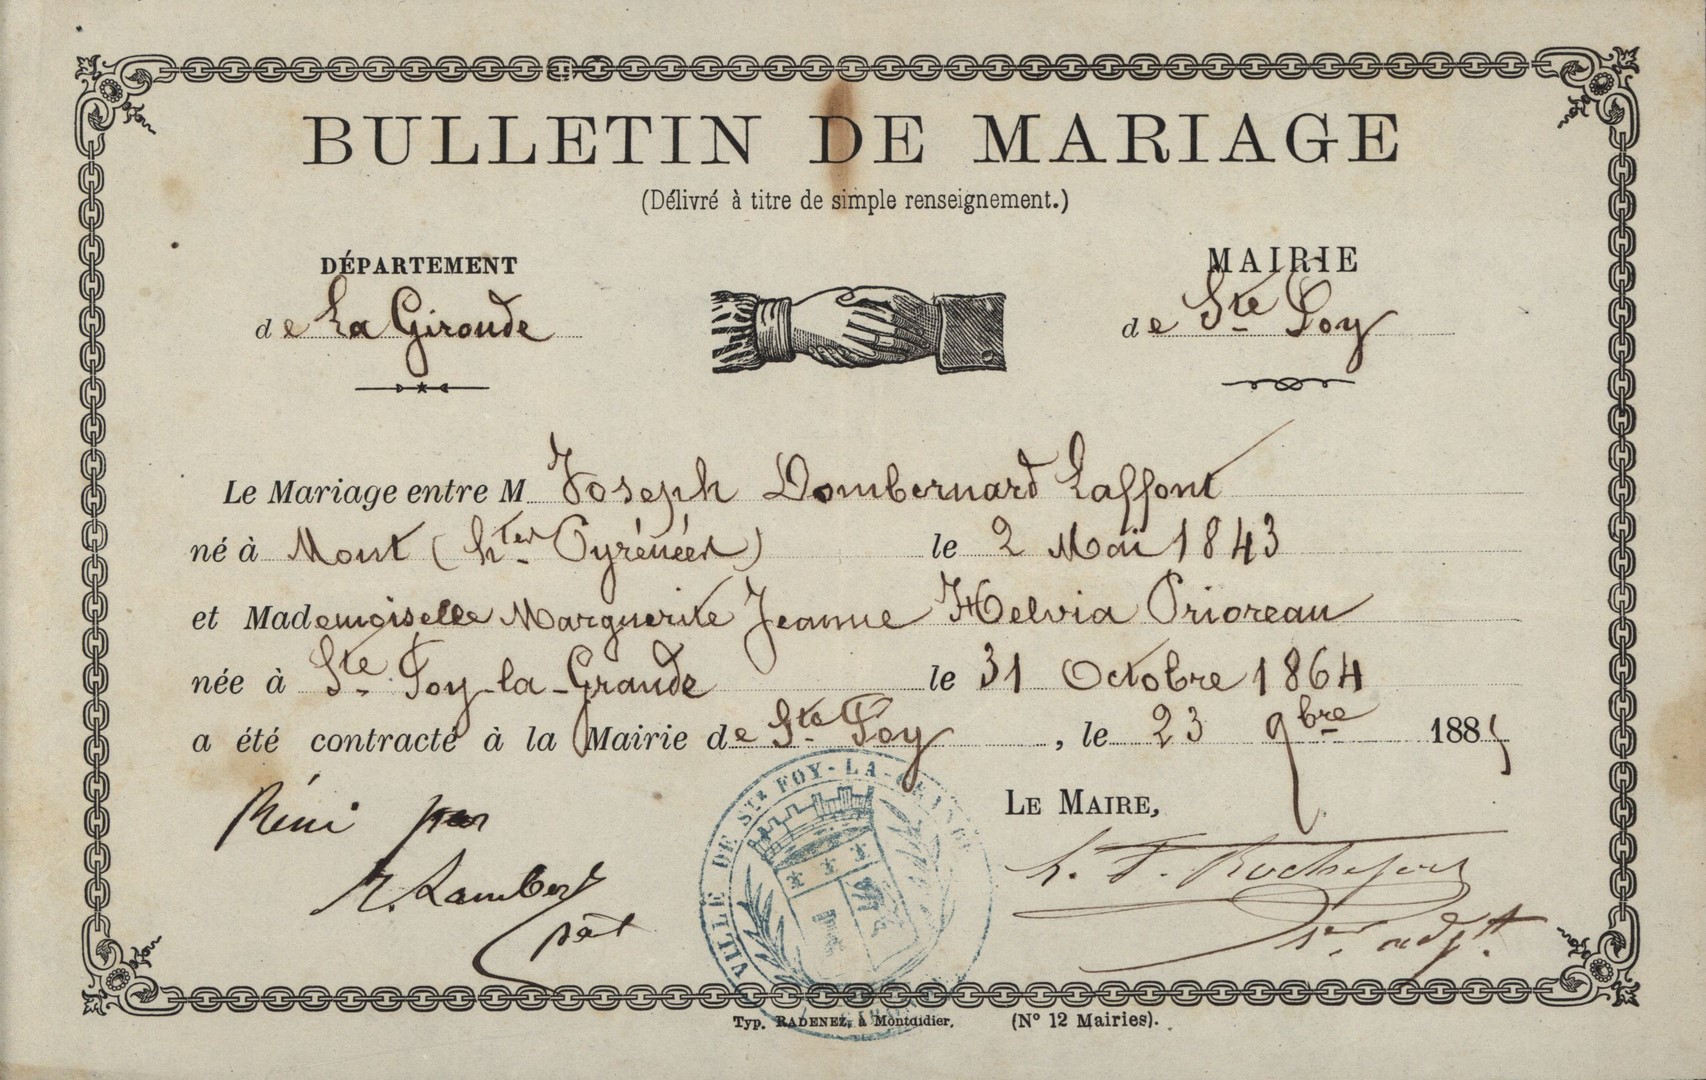 BULLETIN DE MARIAGE
(Délivré à titre de simple renseignement.)
DÉPARTEMENT
de La Gironde
MAIRIE
de Ste Foy
Le Mariage entre M Joseph Dombernard Laffont
né à Mont (htes Pyrénées) le 2 Mai 1843
et Mademoiselle Marguerite Jeanne Helvia Prioreau
née à Ste Foy-la-Grande le 31 Octobre 1864
a été contracté à la Mairie de Ste Foy, le 23 9bre 1885
Béni par
Lambert
LE MAIRE,
Rochefort
1er adjt
VILLE DE STE FOY-LA-GRANDE
Typ. RADENEZ, à Montdidier. (N° 12 Mairies).